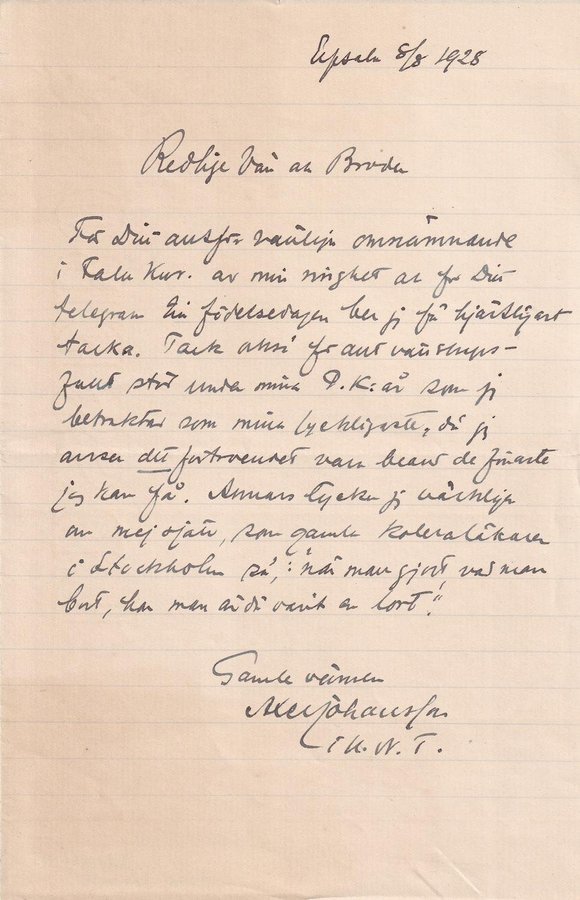 Upsala 8/8 1928
Redlige Vän och Broder
För Ditt alltför vänliga omnämnande
i Falu Kur. av min ringhet och för Ditt
telegram födelsedagen ber jag få hjärtligast
tacka. Tack också för allt vänskaps-
fullt stöd under mina P.K:år som jag
betraktar som mina lyckligaste, då jag
anser det förtroendet vara bland de finaste
jag kan få. Annars tycker jag värkligen
om mej själv, som gamle koleraläkaren
i Stockholm sa,: "när man gjort, vad man
bort, har man ändå varit en lort".
Gamle vännen
Axel Johansson
i U.N.T.